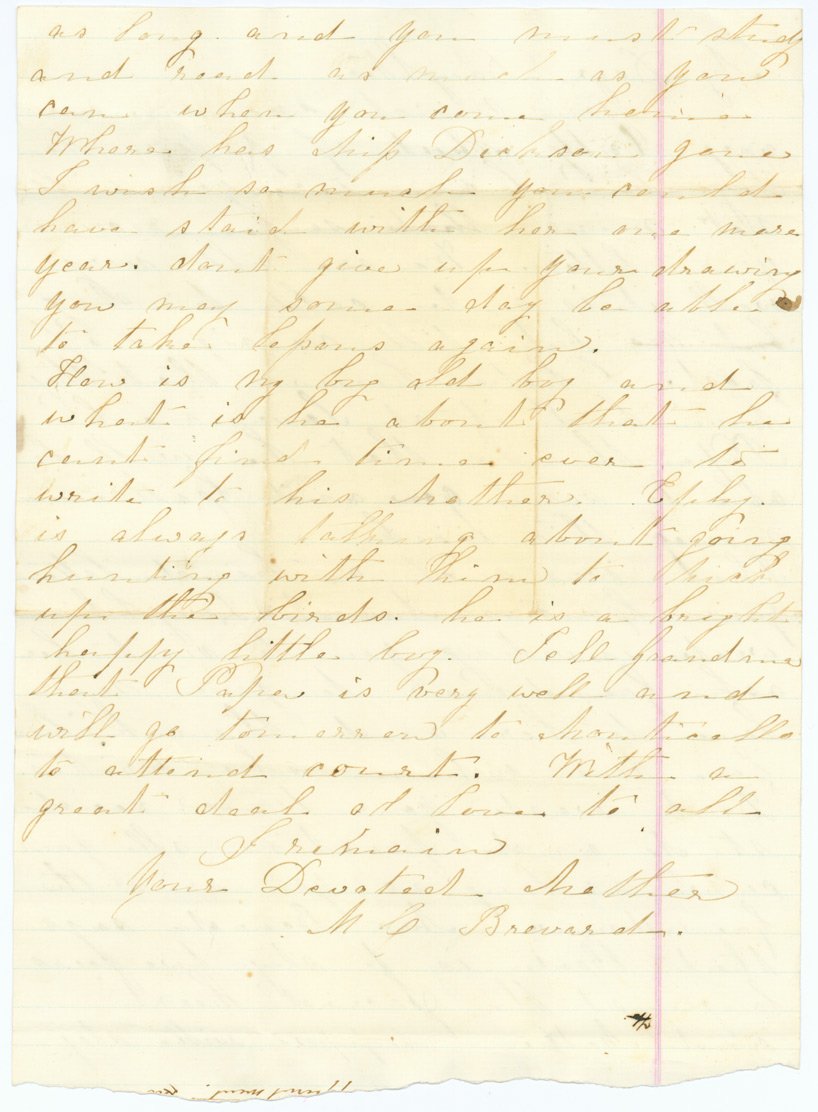 as long. and you must study
and read as much as you
can when you come home
Where has Miss Dickson gone
I wish so much you could
have staid with her one more
year. dont give up your drawing
you may some day be able
to take lessons again.
How is my big old boy and
what is he about that he
cant find time ever to
write to his Mother.
is always talking about going
hunting with him to pick
up the birds. he is a bright
happy little boy. Tell Grandma
that Papa is very well and
will go tomorrow to Monticello
to attend court. With a
great deal of love to all
I remain
Your Devoted Mother
M C Brevard.